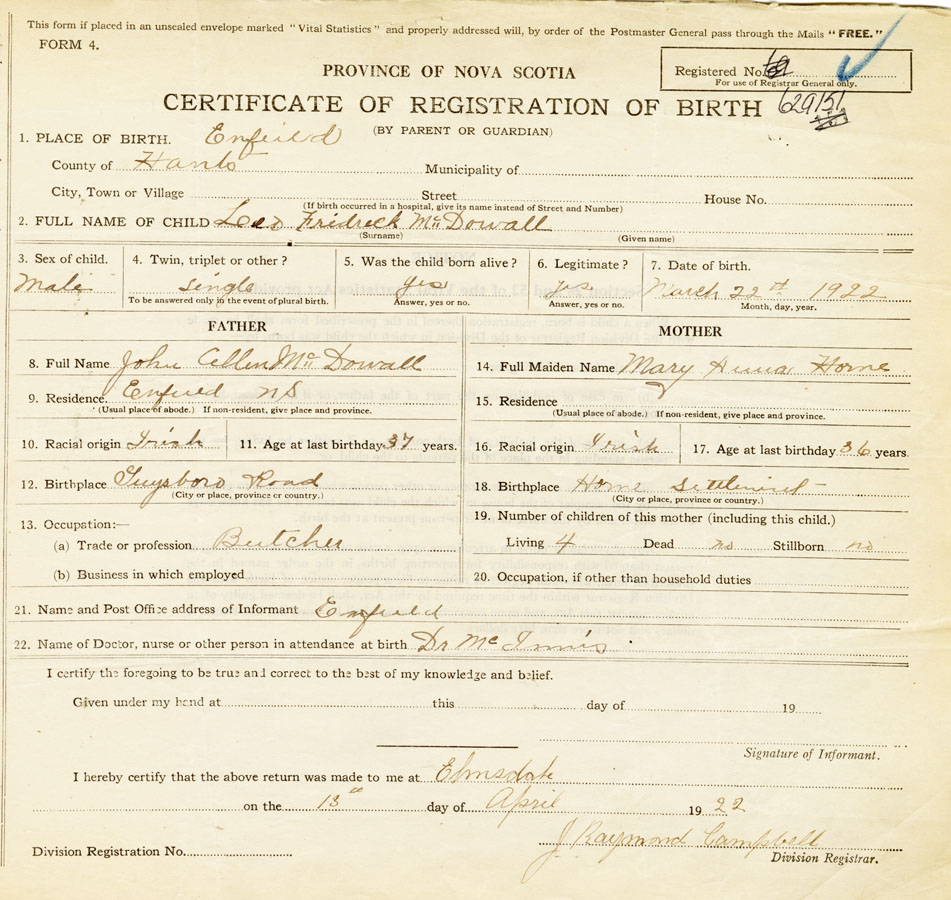 This form if placed in an unsealed envelope marked "Vital Statistics" and properly addressed will, by order of the Postmaster General pass through the Mails "FREE."
FORM 4.
Registered No.
For use of Registrar General only.
PROVINCE OF NOVA SCOTIA
CERTIFICATE OF REGISTRATION OF BIRTH 629151
(BY PARENT OR GUARDIAN)
1. PLACE OF BIRTH. Enfield
County of Hants Municipality of
City, Town or Village Street House No.
(If birth occurred in a hospital, give its name instead of Street and Number)
2. FULL NAME OF CHILD Leo Fridrick McDowall
(Surname) (Given name)
3. Sex of child. 4. Twin, triplet or other? 5. Was the child born alive? 6. Legitimate? 7. Date of birth.
Male single yes yes March 22nd 1922
To be answered only in the event of plural birth. Answer, yes or no. Answer, yes or no. Month, day, year.
FATHER
8. Full Name John Allen McDowall
9. Residence. Enfield NS
(Usual place of abode.) If non-resident, give place and province.
10. Racial origin Irish 11. Age at last birthday 37 years.
12. Birthplace Guysboro Road
(City or place, province or country.)
13. Occupation:—
(a) Trade or profession Butcher
(b) Business in which employed
MOTHER
14. Full Maiden Name Mary Anna Horne
15. Residence
(Usual place of abode.) If non-resident, give place and province.
16. Racial origin Irish 17. Age at last birthday 36 years.
18. Birthplace Horne Settlement
(City or place, province or country.)
19. Number of children of this mother (including this child.)
Living 4 Dead no Stillborn no
20. Occupation, if other than household duties
21. Name and Post Office address of Informant Enfield
22. Name of Doctor, nurse or other person in attendance at birth Dr McInnis
I certify the foregoing to be true and correct to the best of my knowledge and belief.
Given under my hand at this day of 19
Signature of Informant.
I hereby certify that the above return was made to me at Elmsdale
on the 13th day of April 1922
J Raymond Campbell
Division Registration No. Division Registrar.